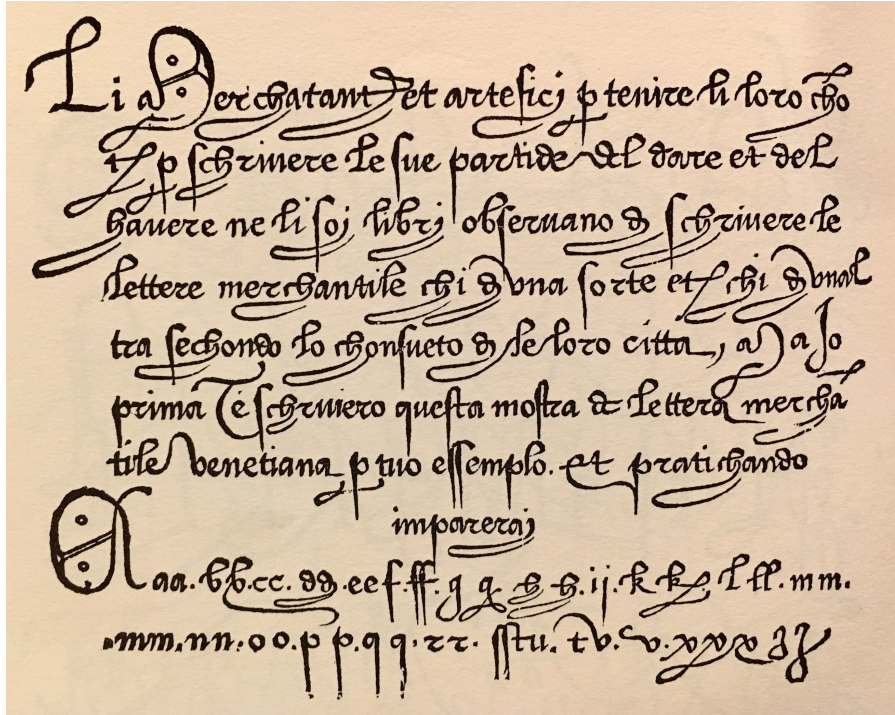 Li Merchatanti et artefici p tenire li loro chō
ti p schrivere le sue partide del dare et del
havere ne li soi libri observano d schrivere le
lettere merchantile chi d una sorte et chi d unal
tra sechondo lo chonsueto d le loro citta, Ma Jo
prima Te schriviero questa mostra de lettera merchā
tile venetiana p tuo essemplo. et pratichando
impareraj
A aa. b b. cc. dd. ee f. ff. g g. h h. ij. k k. l ll. mm.
.mm. nn. oo. p p. q q. rr. sstu. tv. v. v. x x x z z